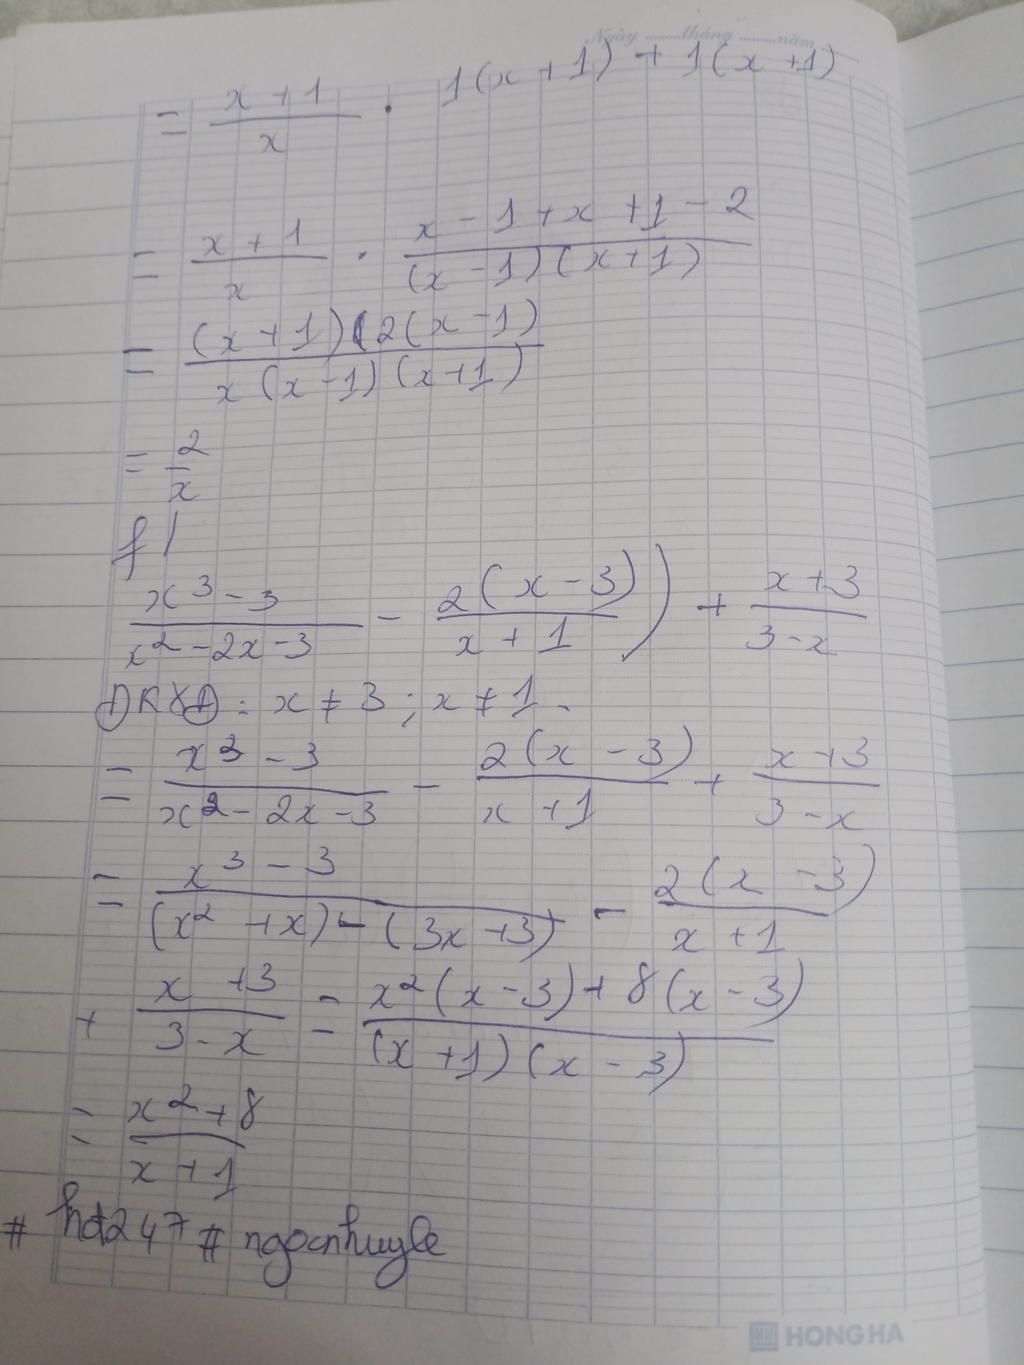 Ngày ........tháng ........năm ........
= x + 1 / x . 1(x + 1) + 1(x + 1)
= x + 1 / x . x - 1 + x + 1 - 2 / (x - 1)(x + 1)
= (x + 1)(2(x - 1) / x(x - 1)(x + 1)
= 2 / x
f /
x³ - 3 / x² - 2x - 3 - 2(x - 3) / x + 1 ) + x + 3 / 3 - x
ĐKXĐ : x ≠ 3 ; x ≠ 1.
= x³ - 3 / x² - 2x - 3 - 2(x - 3) / x + 1 + x + 3 / 3 - x
= x³ - 3 / (x² + x) - (3x + 3) - 2(x - 3) / x + 1
+ x + 3 / 3 - x = x²(x - 3) + 8(x - 3) / (x + 1)(x - 3)
= x² + 8 / x + 1
# hđ247 # ngocnhuyle
HONG HA